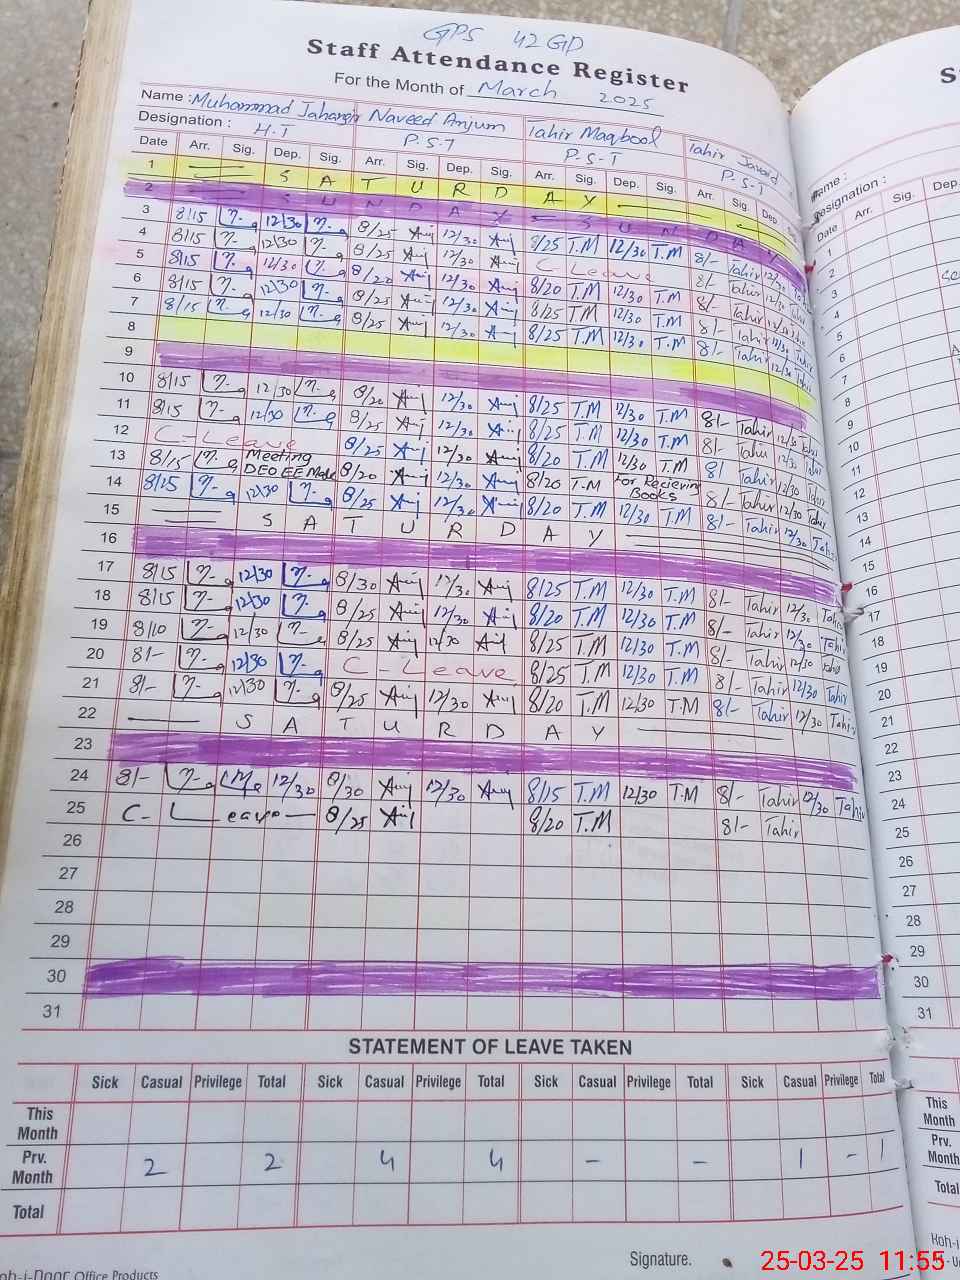 GPS 42 GD
Staff Attendance Register
For the Month of March 2025
Name : Muhammad Jahangir Naveed Anjum Tahir Maqbool Tahir Javaid
Designation : H.T P.S.T P.S.T P.S.T
Date Arr. Sig. Dep. Sig. Arr. Sig. Dep. Sig. Arr. Sig. Dep. Sig. Arr. Sig. Dep. Sig.
1 S A T U R D A Y
2 S U N D A Y S U N D A Y
3 8/15 12/30 8/25 12/30 8/25 T.M 12/30 T.M 8/- Tahir 12/30
4 8/15 12/30 8/25 12/30 C Leave 8/- Tahir 12/30 Tahir
5 8/15 12/30 8/20 12/30 8/20 T.M 12/30 T.M 8/- Tahir 12/30 Tahir
6 8/15 12/30 8/25 12/30 8/25 T.M 12/30 T.M 8/- Tahir 12/30 Tahir
7 8/15 12/30 8/25 12/30 8/25 T.M 12/30 T.M 8/- Tahir 12/30 Tahir
8
9
10 8/15 12/30 8/20 12/30 8/25 T.M 12/30 T.M 8/- Tahir 12/30 Tahir
11 8/15 12/30 8/25 12/30 8/25 T.M 12/30 T.M 8/- Tahir 12/30 Tahir
12 C-Leave 8/25 12/30 8/20 T.M 12/30 T.M 8/ Tahir 12/30 Tahir
13 8/15 Meeting DEO EE Male 8/20 12/30 8/20 T.M For Recieving Books 8/- Tahir 12/30 Tahir
14 8/15 12/30 8/25 12/30 8/20 T.M 12/30 T.M 8/- Tahir 12/30 Tahir
15 S A T U R D A Y
16
17 8/15 12/30 8/30 12/30 8/25 T.M 12/30 T.M 8/- Tahir 12/30 Tahir
18 8/15 12/30 8/25 12/30 8/20 T.M 12/30 T.M 8/- Tahir 12/30 Tahir
19 8/10 12/30 8/25 12/30 8/25 T.M 12/30 T.M 8/- Tahir 12/30 Tahir
20 8/- 12/30 C - Leave 8/25 T.M 12/30 T.M 8/- Tahir 12/30 Tahir
21 8/- 12/30 8/25 12/30 8/20 T.M 12/30 T.M 8/- Tahir 12/30 Tahir
22 S A T U R D A Y
23
24 8/- 12/30 8/30 12/30 8/15 T.M 12/30 T.M 8/- Tahir 12/30 Tahir
25 C- Leave 8/25 8/20 T.M 8/- Tahir
26
27
28
29
30
31
STATEMENT OF LEAVE TAKEN
Sick Casual Privilege Total Sick Casual Privilege Total Sick Casual Privilege Total Sick Casual Privilege Total
This Month
Prv. Month 2 2 4 4 - - 1 - 1
Total
Signature.
Koh-i-Noor Office Products
Name :
Designation :
Date Arr. Sig. Dep.
1
2
3
4
5
6
7
8
9
10
11
12
13
14
15
16
17
18
19
20
21
22
23
24
25
26
27
28
29
30
31
This Month
Prv. Month
Total
25-03-25 11:55